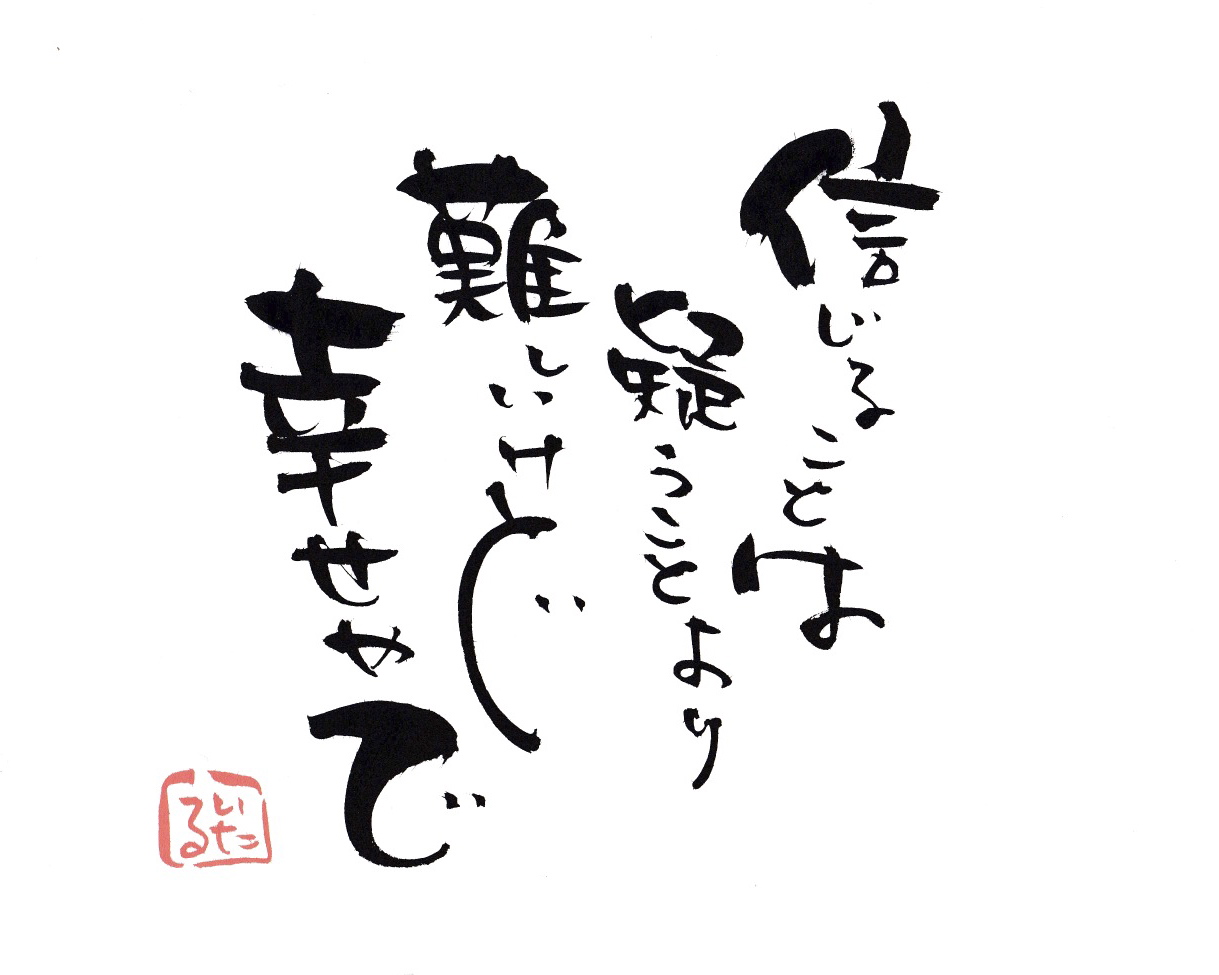 信じることは
疑うことより
難しいけど
幸せやで
いたる